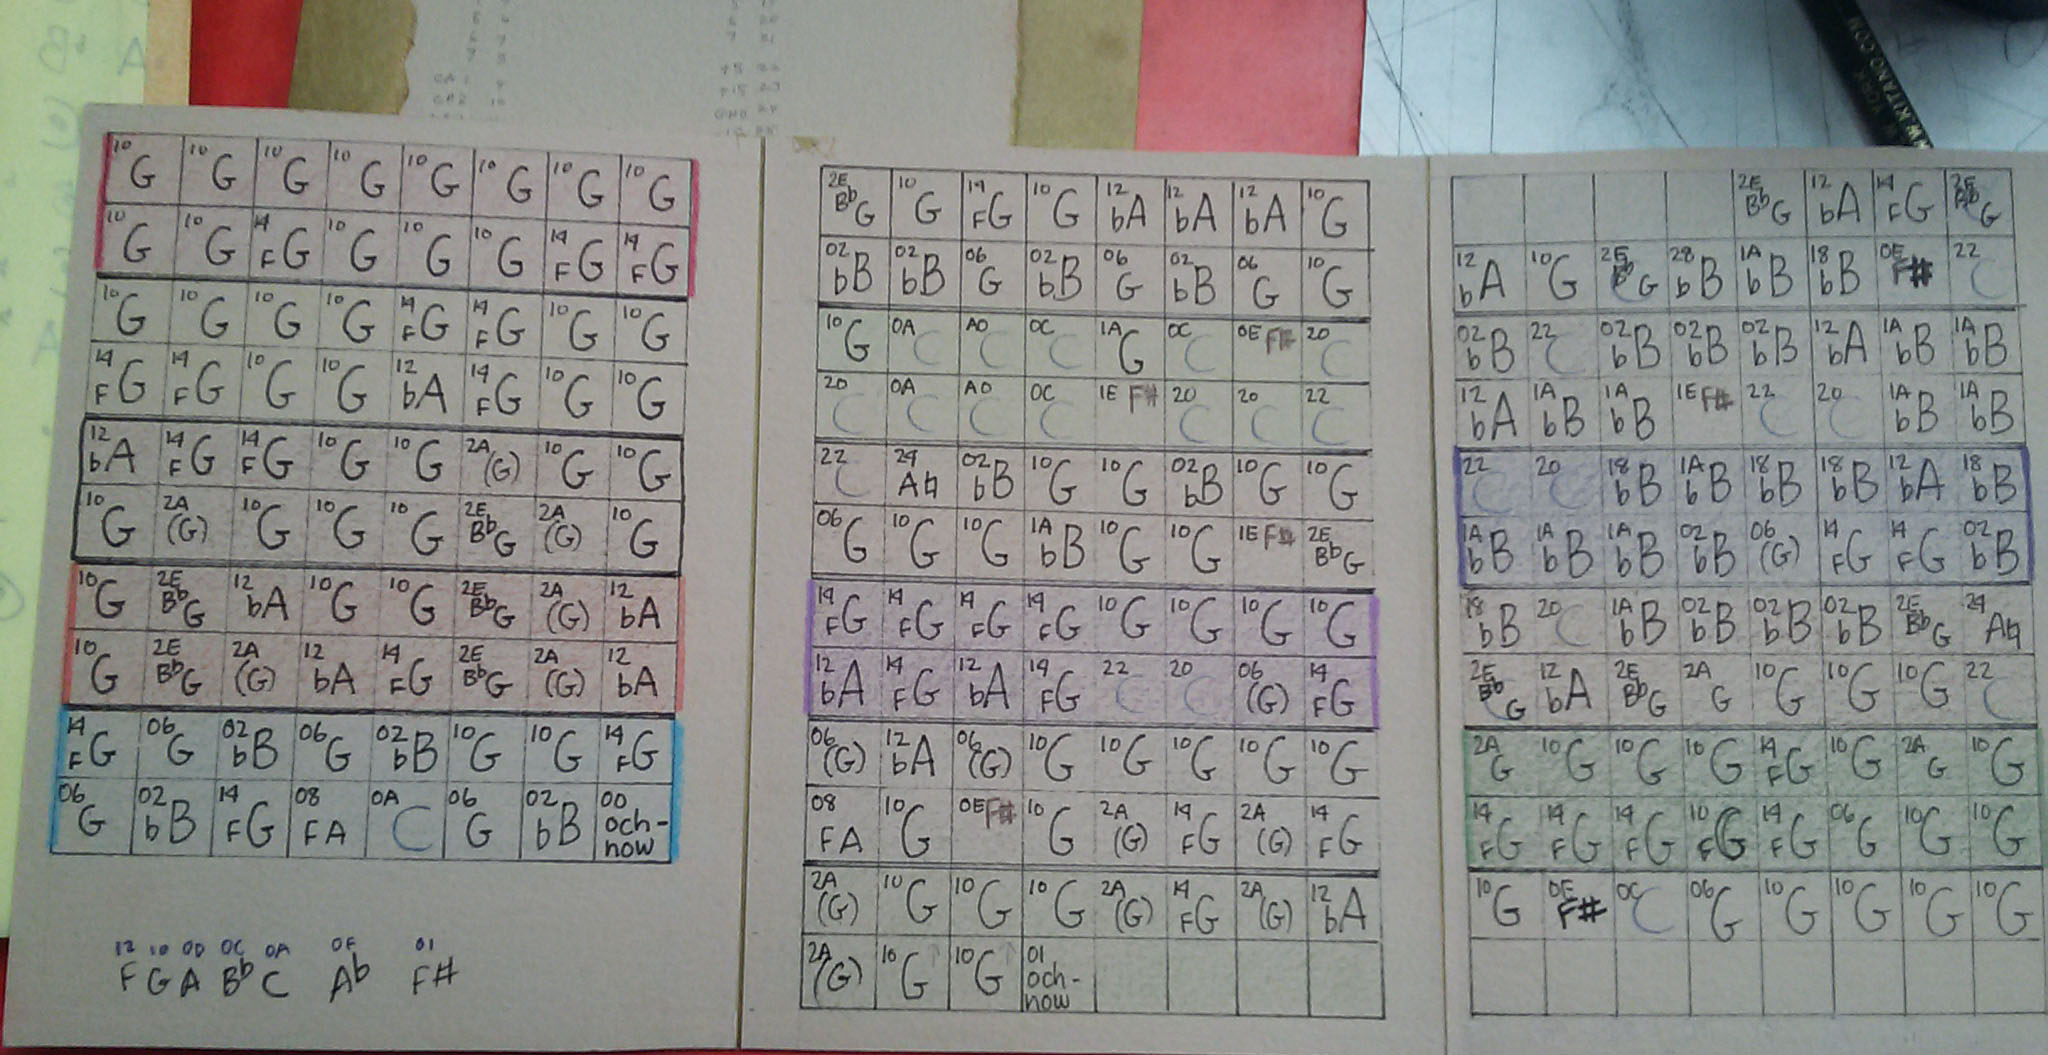 10 G 10 G 10 G 10 G 10 G 10 G 10 G 10 G
10 G 10 G 14 FG 10 G 10 G 10 G 14 FG 14 FG
10 G 10 G 10 G 10 G 14 FG 14 FG 10 G 10 G
14 FG 14 FG 10 G 10 G 12 bA 14 FG 10 G 10 G
12 bA 14 FG 14 FG 10 G 10 G 2A (G) 10 G 10 G
10 G 2A (G) 10 G 10 G 10 G 2E BbG 2A (G) 10 G
10 G 2E BbG 12 bA 10 G 10 G 2E BbG 2A (G) 12 bA
10 G 2E BbG 2A (G) 12 bA 14 FG 2E BbG 2A (G) 12 bA
14 FG 06 G 02 bB 06 G 02 bB 10 G 10 G 14 FG
06 G 02 bB 14 FG 08 FA 0A C 06 G 02 bB 00 och-now
12 10 0D 0C 0A 0F 01
F G A Bb C Ab F#
2E BbG 10 G 14 FG 10 G 12 bA 12 bA 12 bA 10 G
02 bB 02 bB 06 G 02 bB 06 G 02 bB 06 G 10 G
10 G 0A C A0 C 0C C 1A G 0C C 0E F# 20 C
20 C 0A C A0 C 0C C 1E F# 20 C 20 C 22 C
22 C 24 A♮ 02 bB 10 G 10 G 02 bB 10 G 10 G
06 G 10 G 10 G 1A bB 10 G 10 G 1E F# 2E BbG
14 FG 14 FG 14 FG 14 FG 10 G 10 G 10 G 10 G
12 bA 14 FG 12 bA 14 FG 22 C 20 C 06 (G) 14 FG
06 (G) 12 bA 06 (G) 10 G 10 G 10 G 10 G 10 G
08 FA 10 G 0E F# 10 G 2A (G) 14 FG 2A (G) 14 FG
2A (G) 10 G 10 G 10 G 2A (G) 14 FG 2A (G) 12 bA
2A (G) 10 G 10 G 01 och-now
2E BbG 12 bA 14 FG 2E BbG
12 bA 10 G 2E BbG 28 bB 1A bB 18 bB 0E F# 22 C
02 bB 22 C 02 bB 02 bB 02 bB 12 bA 1A bB 1A bB
12 bA 1A bB 1A bB 1E F# 22 C 20 C 1A bB 1A bB
22 C 20 C 18 bB 1A bB 18 bB 18 bB 12 bA 18 bB
1A bB 1A bB 1A bB 02 bB 06 (G) 14 FG 14 FG 02 bB
18 bB 20 C 1A bB 02 bB 02 bB 02 bB 2E BbG 24 A♮
2E BbG 12 bA 2E BbG 2A G 10 G 10 G 10 G 22 C
2A G 10 G 10 G 10 G 14 FG 10 G 2A G 10 G
14 FG 14 FG 14 FG 10 FG 14 FG 06 G 10 G 10 G
10 G 0E F# 0C C 06 G 10 G 10 G 10 G 10 G